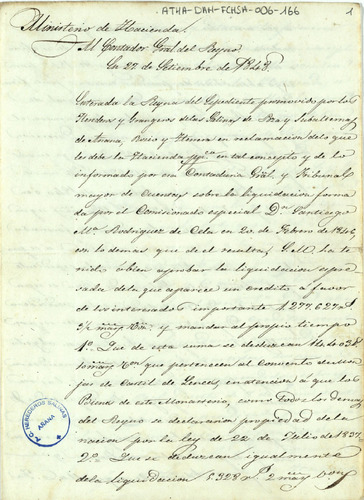 ATHA-DAH-FCHSA-006-166
1
Ministerio de Hacienda.
Al Contador Gral del Reyno.
En 22 de Setiembre de 1848.
Enterada la Reyna del Espediente promovido por los
Herederos y Grangeros de las Salinas de Poza y Subalternas
de Añana, Rosio y Herrera en reclamacion de lo que
les debe la Hacienda en tal concepto y de lo
informado por esa Contaduria Gral y Tribunal
mayor de Cuentas sobre la liquidacion forma
da por el Comisionado especial Dn Santiago
Ma Rodriguez de Cela en 20 de Febrero de 1846
con lo demas que de el resulta, S.M. ha te
nido á bien aprobar la liquidacion espre
sada de la que aparece un credito á favor
de los interesados importante
y mandar al propio tiempo
1º. Que de esta suma se deduzcan
que pertenecen al Convento de Mon
jas de Castil de Lences, en atencion á que los
Bienes de este Monasterio, como todos los demas
del Reyno se declararon propiedad de la
nacion por la ley de 22 de Julio de 1837.
2º. Que se deduzcan igualmente
de la liquidacion 5.328
HEREDEROS SALINAS
AÑANA